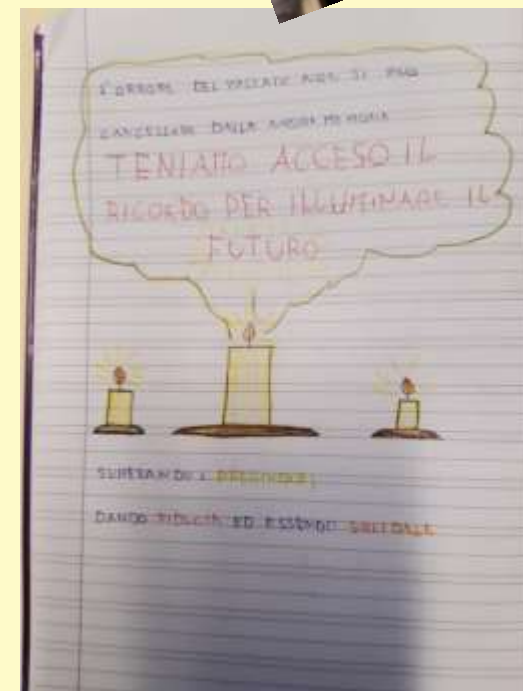 L'ORRORE DEL PASSATO NON SI PUÒ
CANCELLARE DALLA NOSTRA MEMORIA
TENIAMO ACCESO IL
RICORDO PER ILLUMINARE IL
FUTURO
SUPERANDO I PREGIUDIZI,
DANDO FIDUCIA ED ESSENDO SOLIDALE